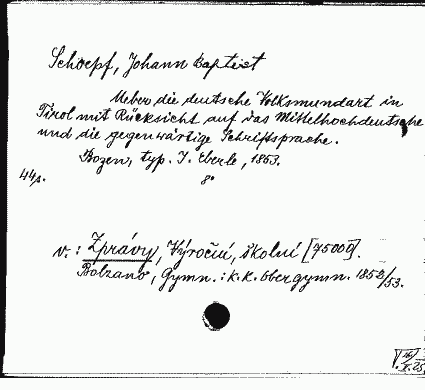 Schoepf, Johann Baptist
Ueber die deutsche Volksmundart in
Tirol mit Rücksicht auf das Mittelhochdeutsche
und die gegenwärtige Schriftsprache.
Bozen, typ. J. Eberle, 1853.
44 s. 8°
v.: Zprávy, Výroční, školní [75000].
Bolzano, Gymn.: k. k. Obergymn. 1852/53.